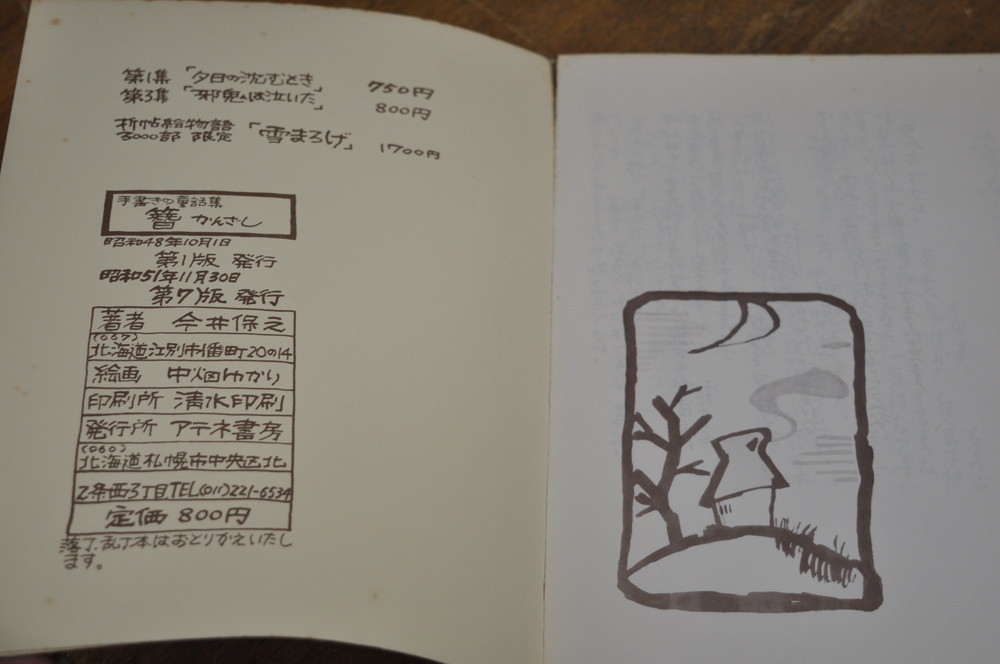 第1集 「夕日の沈むとき」 750円
第3集 「邪鬼は泣いた」 800円
折帖絵物語
3000部 限定 「雪まろげ」 1700円
手書きの童話集
簪 かんざし
昭和48年10月1日
第1版 発行
昭和51年11月30日
第7版 発行
著者 今井保之
(067)
北海道江別市1番町20の14
絵画 中畑ゆかり
印刷所 清水印刷
発行所 アテネ書房
(060)
北海道札幌市中央区北
2条西3丁目TEL(011)221-6534
定価 800円
落丁、乱丁本はおとりかえいたし
ます。